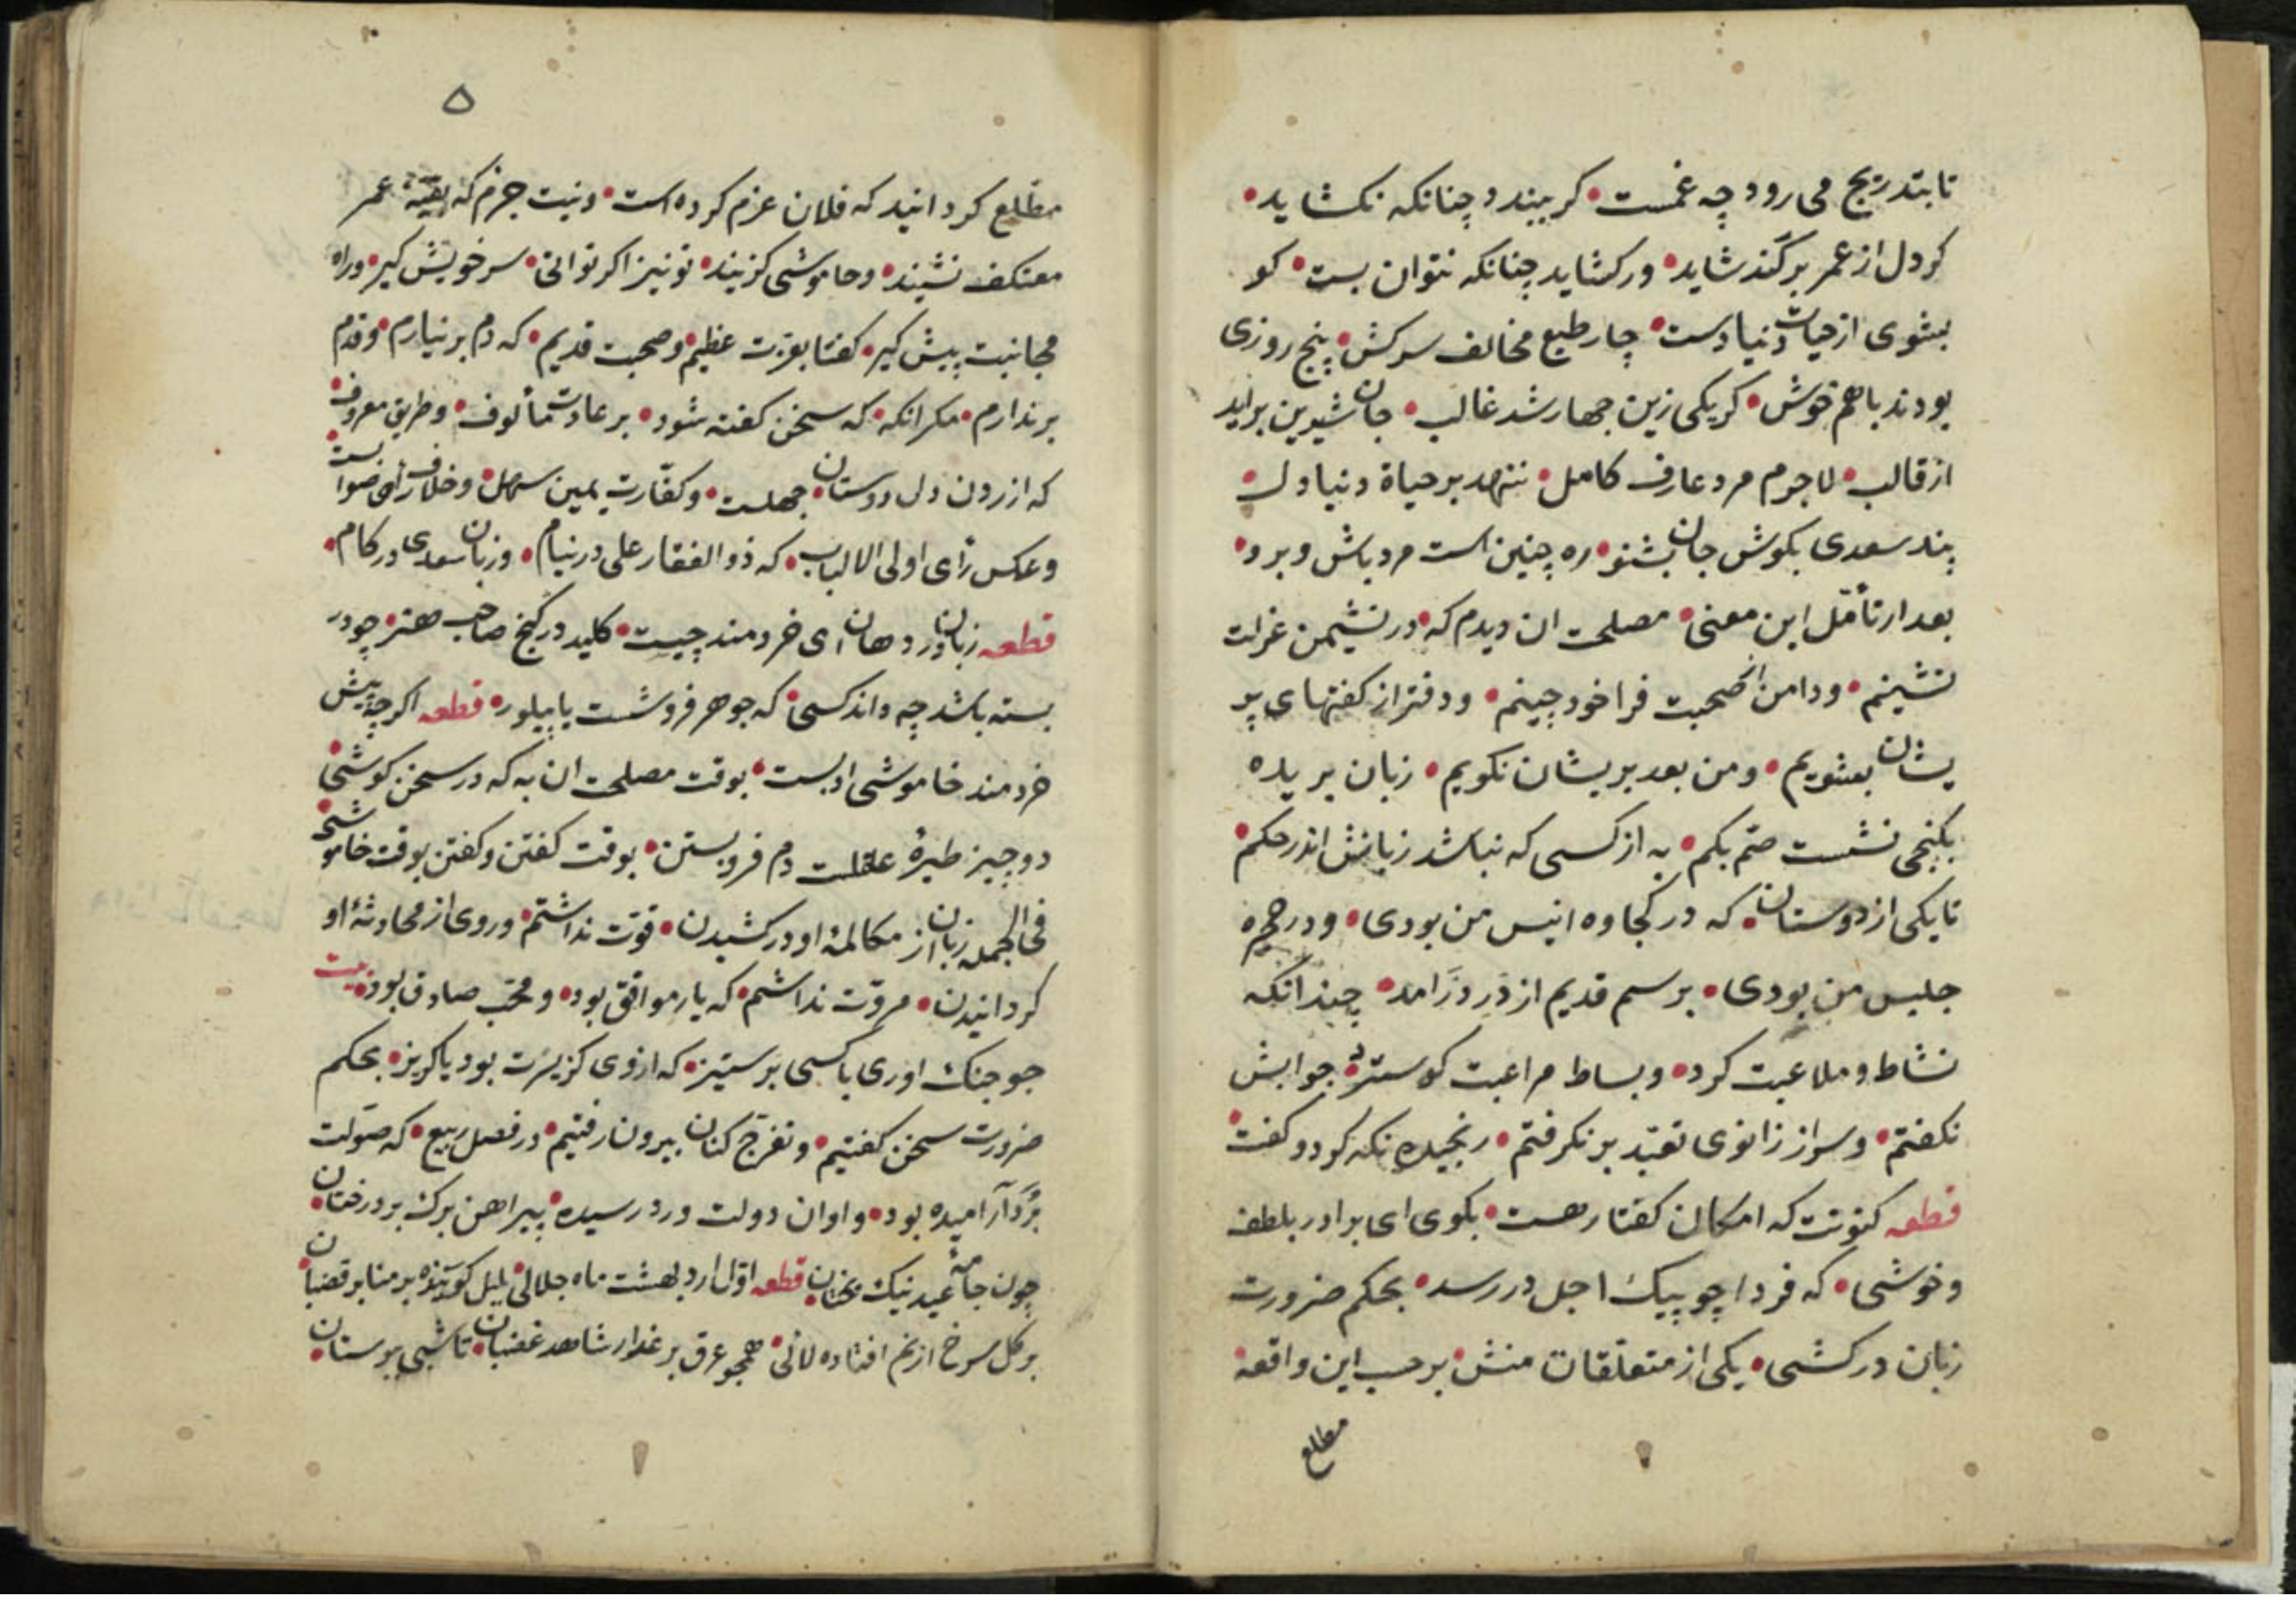 تا بتدریج می رود چه غمست • کر ببندد چنانکه نکشاید •
کر دل از عمر بر کند شاید • ور کشاید چنانکه نتوان بست • کو
بشوی از حیات دنیا دست • چار طبع مخالف سرکش • پنج روزی
بودند باهم خوش • کر یکی زین جهار شد غالب • جان شیرین براید
از قالب • لاجرم مرد عارف کامل • ننهد بر حیاة دنیا دل •
پند سعدی بکوش جان بشنو • ره چنین است مرد باش و برو •
بعد از تأمّل این معنی • مصلحت ان دیدم که • در نشیمن عزلت
نشینم • ودامن از صحبت فراخود چینم • ودفتر از کفتهای پر
یشان بشویم • ومن بعد پریشان نکویم • زبان بریده
بکنجی نشست صمّ بکم • به از کسی که نباشد زبانش اندر حکم •
تا یکی از دوستان • که در کجاوه انیس من بودی • ودر حجره
جلیس من بودی • برسم قدیم از در درامد • چندانکه
نشاط وملاعبت کرد • وبساط مراعبت کوسترد • جوابش
نکفتم • وسر از زانوی تعبّد بر نکرفتم • رنجیده نکه کرد وکفت •
قطعه کنونت که امکان کفتار هست • بکوی ای برادر بلطف
وخوشی • که فردا چو پیک اجل در رسد • بحکم ضرورت
زبان در کشی • یکی از متعلّقات منش • بر حسب این واقعه •
مطلع
۵
مطلع کردانید که فلان عزم کرده است • ونیت جزم که بقیّة عمر
معتکف نشیند • وخاموشی کزیند • تو نیز اکر توانی • سر خویش کیر • وراه
مجانبت پیش کیر • کفتا بعزت عظیم • وصحبت قدیم • که دم بر نیارم • وقدم
بر ندارم • مکر انکه • که سخن کفته شود • بر عادت مألوف • وطریق معروف •
که ازردن دل دوستان • جهلست • وکفّارت یمین سهل • وخلاف رأی صوابست •
وعکس رأی اولی الالباب • که ذو الفقار علی در نیام • وزبان سعدی در کام •
قطعه زبان در دهان ای خردمند چیست • کلید در کنج صاحب هنر • چو در
بسته باشد چه داند کسی • که جوهر فروشست یا پیلور • قطعه اکر چه پیش
خردمند خاموشی ادبست • بوقت مصلحت ان به که در سخن کوشی •
دو چیز طیرهٔ عقلست دم فرو بستن • بوقت کفتن وکفتن بوقت خاموشی •
فی الجمله زبان از مکالمهٔ او در کشیدن • قوّت نداشتم • وروی از محادثهٔ او
کردانیدن • مروّت نداشتم • که یار موافق بود • ومحبّ صادق بود • بیت
جو جنک اوری با کسی بر ستیز • که از وی کزیرت بود یا کریز • بحکم
ضرورت سخن کفتیم • وتفرّج کنان بیرون رفتیم • در فصل ربیع • که صولت
برد آرامیده بود • واوان دولت ورد رسیده • پیراهن برک بر درختان •
چون جامهٔ عید نیک بختان • قطعه اوّل اردبهشت ماه جلالی • بلبل کوینده بر منابر قضبان •
بر کل سرخ از نم افتاده لالی • همچو عرق بر عذار شاهد غضبان • تا شبی ببوستان •